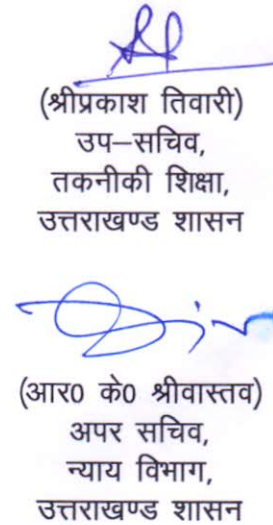 (श्रीप्रकाश तिवारी)
उप–सचिव,
तकनीकी शिक्षा,
उत्तराखण्ड शासन
(आर0 के0 श्रीवास्तव)
अपर सचिव,
न्याय विभाग,
उत्तराखण्ड शासन